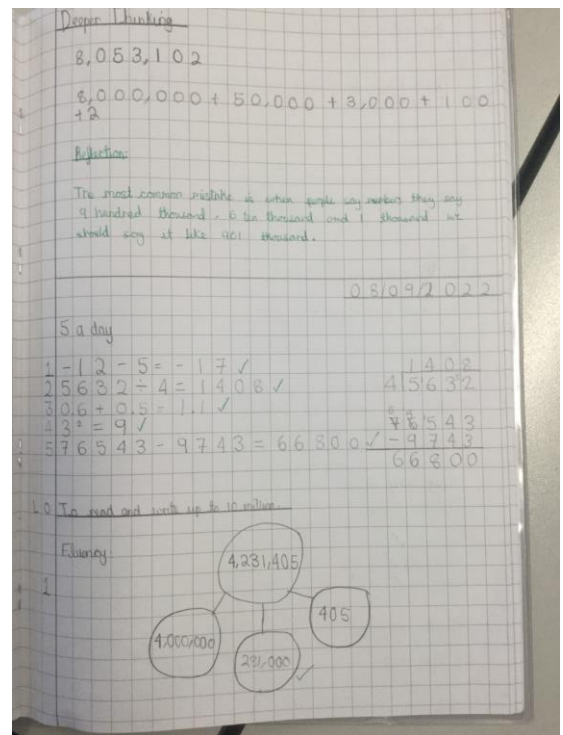 Deeper Thinking
8,053,102
8,000,000 + 50,000 + 3,000 + 100
+2
Reflection:
The most common mistake is when people say numbers they say
9 hundred thousand, 6 ten thousand and 1 thousand we
should say it like 901 thousand.
08/09/2022
5 a day
1 -12-5=-17 ✓
1408
2 5632÷4=1408 ✓
4 5 ¹6 3 ³2
3 0.6+0.5=1.1 ✓
4 3²=9 ✓
76543
5 76543-9743=66800 ✓
-9743
66800
L.O To read and write up to 10 million.
Fluency:
4,231,405
1
405
4,000,000
231,000 ✓